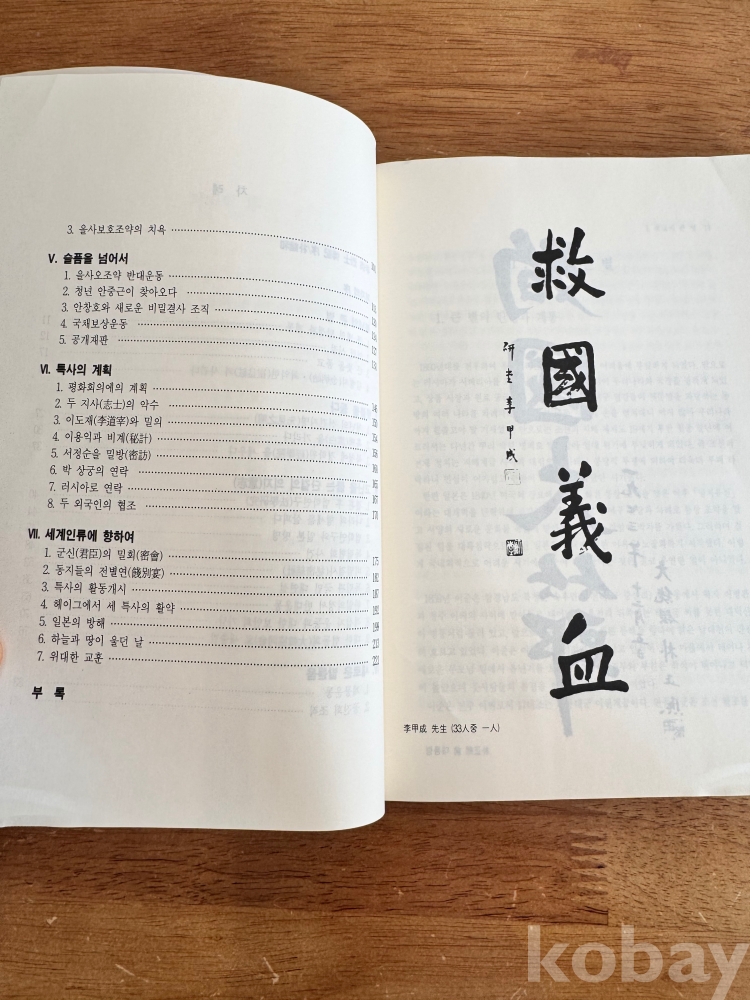 3. 을사보호조약의 치욕
Ⅴ. 슬픔을 넘어서
1. 을사오조약 반대운동
2. 청년 안중근이 찾아오다
3. 안창호와 새로운 비밀결사 조직
4. 국채보상운동
5. 공개재판
Ⅵ. 특사의 계획
1. 평화회의에의 계획
2. 두 지사(志士)의 악수
3. 이도재(李道宰)와 밀의 150
4. 이용익과 비계(秘計) 154
5. 서정순을 밀방(密訪)
6. 박 상궁의 연락 166
7. 러시아로 연락 167
8. 두 외국인의 협조 170
Ⅶ. 세계인류에 향하여
1. 군신(君臣)의 밀회(密會) 175
2. 동지들의 전별연(餞別宴) 182
3. 특사의 활동개시 187
4. 헤이그에서 세 특사의 활약
5. 일본의 방해
6. 하늘과 땅이 울던 날
7. 위대한 교훈
부 록
救國義血
研堂 李甲成
李甲成 先生 (33人中 一人)
kobay